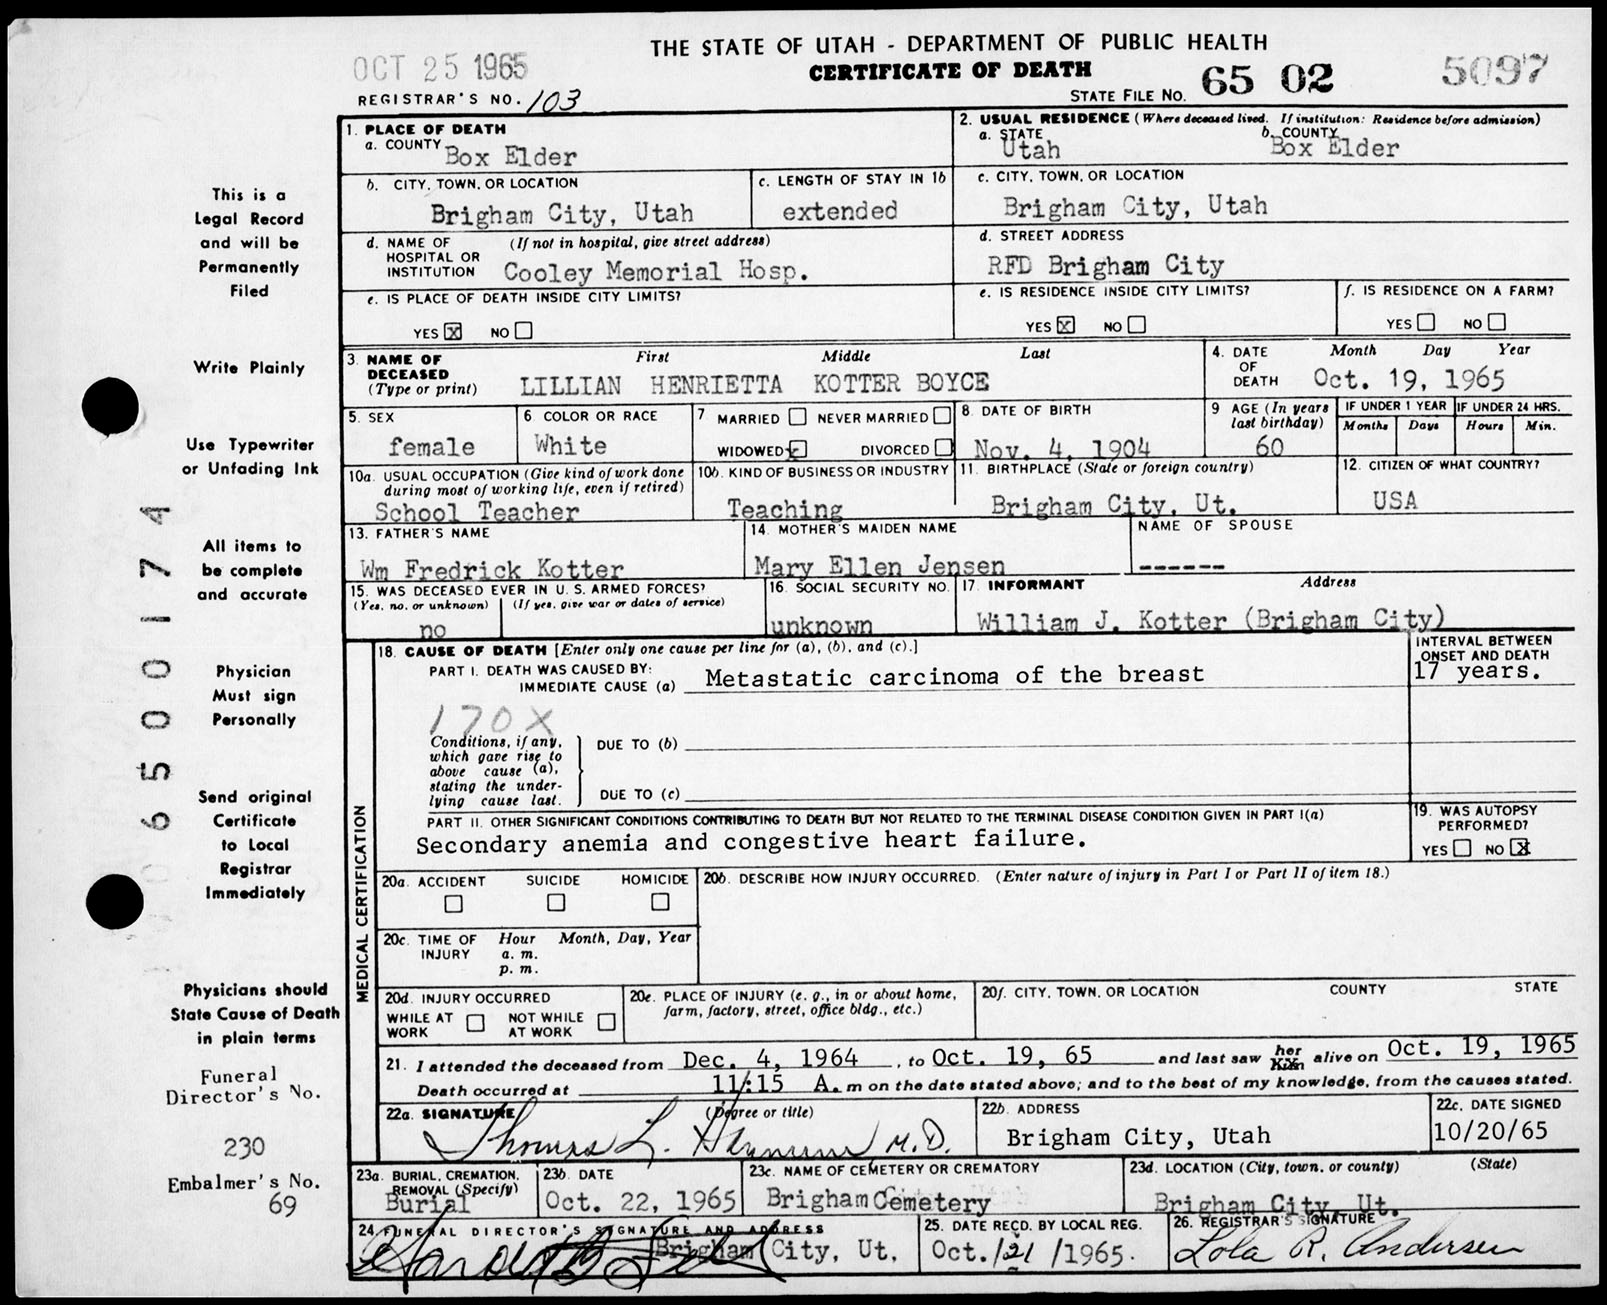 OCT 25 1965
THE STATE OF UTAH - DEPARTMENT OF PUBLIC HEALTH
CERTIFICATE OF DEATH
REGISTRAR'S NO. 103
STATE FILE NO. 65 02 5097
This is a
Legal Record
and will be
Permanently
Filed
Write Plainly
Use Typewriter
or Unfading Ink
All items to
be complete
and accurate
Physician
Must sign
Personally
Send original
Certificate
to Local
Registrar
Immediately
Physicians should
State Cause of Death
in plain terms
Funeral
Director's No.
230
Embalmer's No.
69
6500174
1. PLACE OF DEATH
a. COUNTY Box Elder
2. USUAL RESIDENCE (Where deceased lived. If institution: Residence before admission)
a. STATE Utah b. COUNTY Box Elder
b. CITY, TOWN, OR LOCATION
Brigham City, Utah
c. LENGTH OF STAY IN 1b
extended
c. CITY, TOWN, OR LOCATION
Brigham City, Utah
d. NAME OF (If not in hospital, give street address)
HOSPITAL OR
INSTITUTION Cooley Memorial Hosp.
d. STREET ADDRESS
RFD Brigham City
e. IS PLACE OF DEATH INSIDE CITY LIMITS?
YES X NO
e. IS RESIDENCE INSIDE CITY LIMITS?
YES X NO
f. IS RESIDENCE ON A FARM?
YES NO
3. NAME OF First Middle Last
DECEASED
(Type or print) LILLIAN HENRIETTA KOTTER BOYCE
4. DATE Month Day Year
OF
DEATH Oct. 19, 1965
5. SEX
female
6. COLOR OR RACE
White
7 MARRIED NEVER MARRIED
WIDOWED x DIVORCED
8. DATE OF BIRTH
Nov. 4, 1904
9 AGE (In years
last birthday)
60
IF UNDER 1 YEAR IF UNDER 24 HRS.
Months Days Hours Min.
10a. USUAL OCCUPATION (Give kind of work done
during most of working life, even if retired)
School Teacher
10b. KIND OF BUSINESS OR INDUSTRY
Teaching
11. BIRTHPLACE (State or foreign country)
Brigham City, Ut.
12. CITIZEN OF WHAT COUNTRY?
USA
13. FATHER'S NAME
Wm Fredrick Kotter
14. MOTHER'S MAIDEN NAME
Mary Ellen Jensen
NAME OF SPOUSE
------
15. WAS DECEASED EVER IN U. S. ARMED FORCES?
(Yes, no, or unknown) (If yes, give war or dates of service)
no
16. SOCIAL SECURITY NO.
unknown
17. INFORMANT Address
William J. Kotter (Brigham City)
MEDICAL CERTIFICATION
18. CAUSE OF DEATH [Enter only one cause per line for (a), (b), and (c).]
PART I. DEATH WAS CAUSED BY:
IMMEDIATE CAUSE (a) Metastatic carcinoma of the breast
INTERVAL BETWEEN
ONSET AND DEATH
17 years.
170X
Conditions, if any,
which gave rise to
above cause (a),
stating the under-
lying cause last.
DUE TO (b)
DUE TO (c)
PART II. OTHER SIGNIFICANT CONDITIONS CONTRIBUTING TO DEATH BUT NOT RELATED TO THE TERMINAL DISEASE CONDITION GIVEN IN PART I(a)
Secondary anemia and congestive heart failure.
19. WAS AUTOPSY
PERFORMED?
YES NO X
20a. ACCIDENT SUICIDE HOMICIDE
20b. DESCRIBE HOW INJURY OCCURRED. (Enter nature of injury in Part I or Part II of item 18.)
20c. TIME OF Hour Month, Day, Year
INJURY a. m.
p. m.
20d. INJURY OCCURRED
WHILE AT NOT WHILE
WORK AT WORK
20e. PLACE OF INJURY (e. g., in or about home,
farm, factory, street, office bldg., etc.)
20f. CITY, TOWN, OR LOCATION COUNTY STATE
21. I attended the deceased from Dec. 4, 1964, to Oct. 19, 65 and last saw her alive on Oct. 19, 1965
Death occurred at 11:15 A. m on the date stated above; and to the best of my knowledge, from the causes stated.
22a. SIGNATURE (Degree or title)
Thomas L. M.D.
22b. ADDRESS
Brigham City, Utah
22c. DATE SIGNED
10/20/65
23a. BURIAL, CREMATION,
REMOVAL (Specify)
Burial
23b. DATE
Oct. 22, 1965
23c. NAME OF CEMETERY OR CREMATORY
Brigham Cemetery
23d. LOCATION (City, town, or county) (State)
Brigham City, Ut.
24. FUNERAL DIRECTOR'S SIGNATURE AND ADDRESS
Harold B. Felt Brigham City, Ut.
25. DATE RECD. BY LOCAL REG.
Oct./21/1965.
26. REGISTRAR'S SIGNATURE
Lola R. Andersen